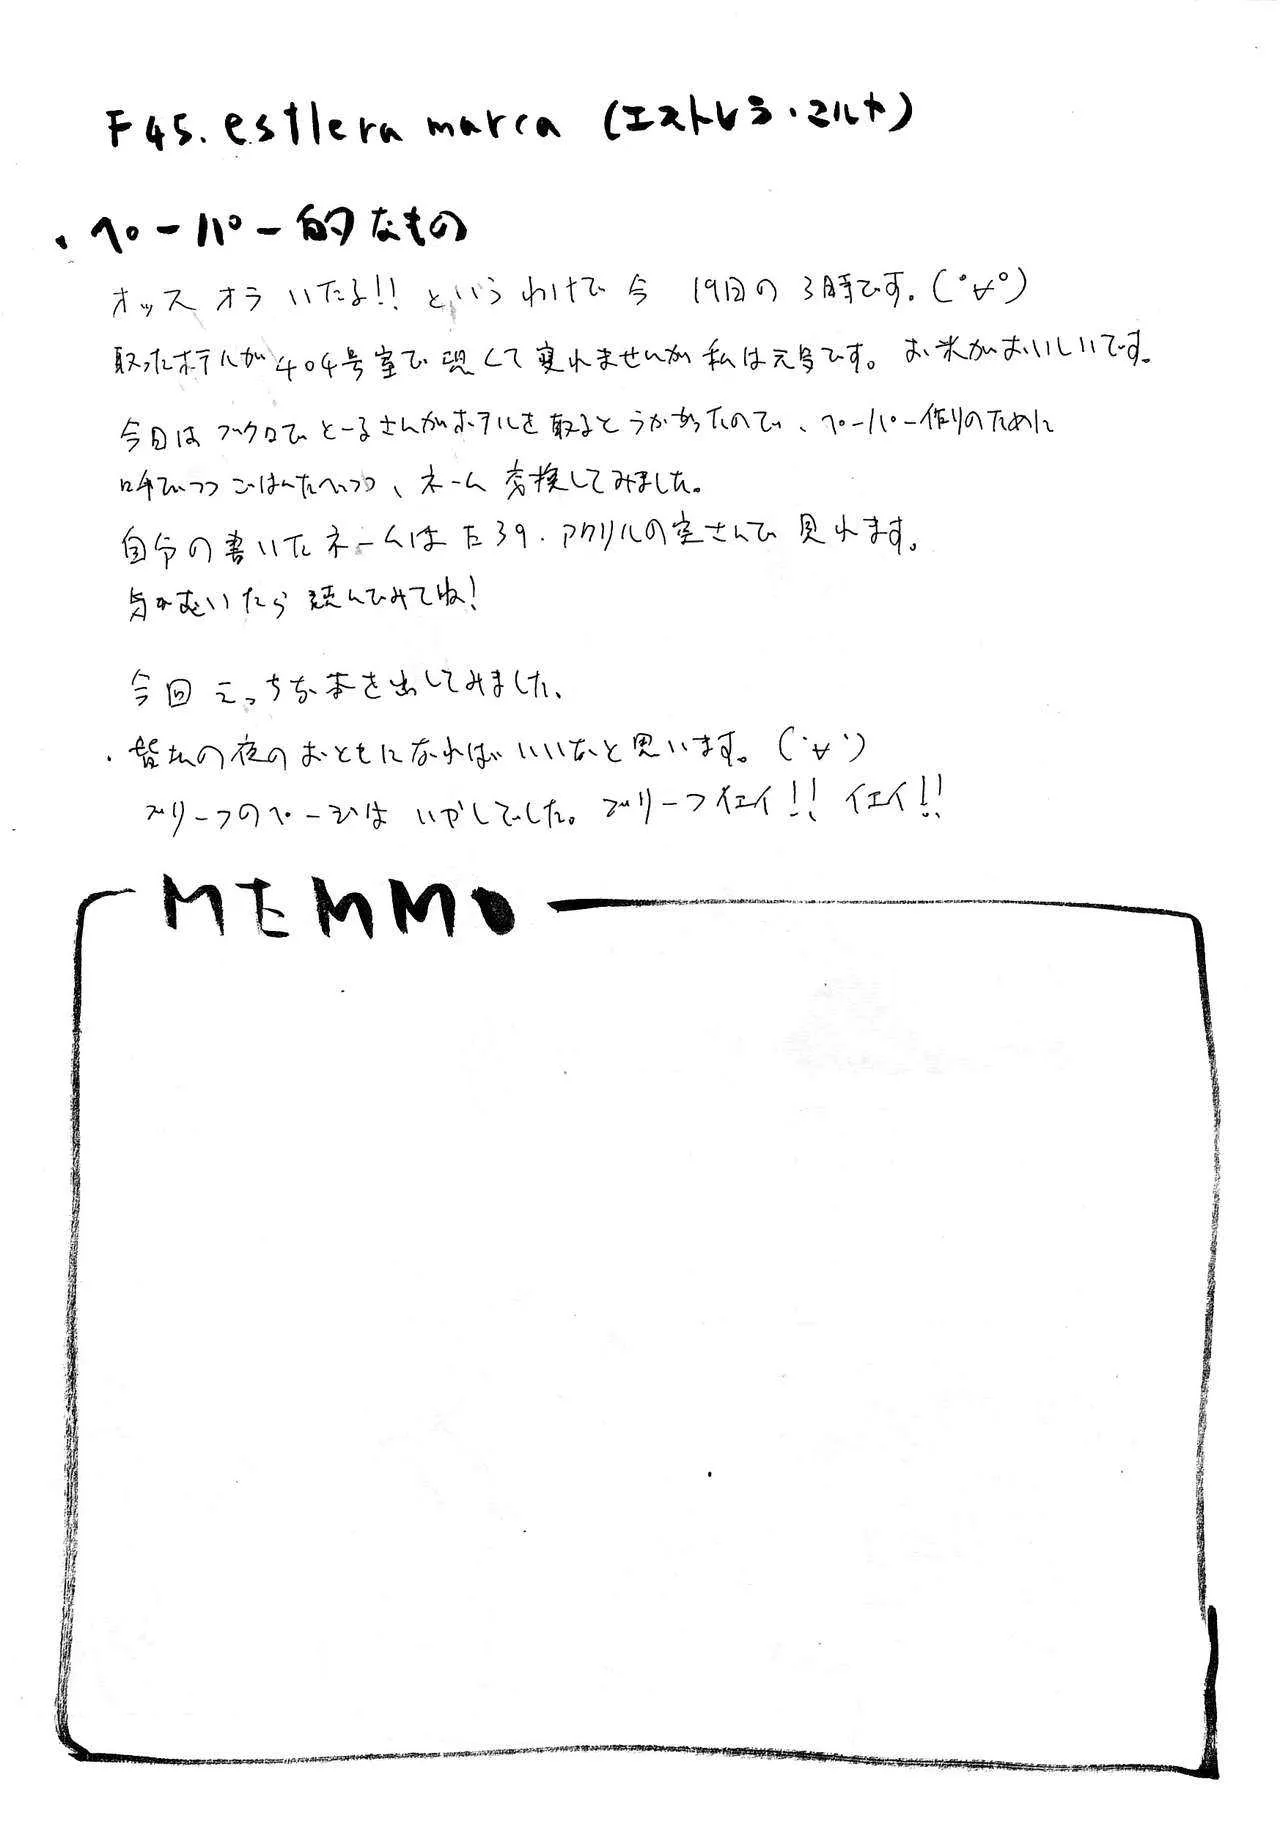 F45. estlera marca (エストレラ・マルカ)
・ペーパー的なもの
オッス オラいたる!! というわけで今 19日の3時です。(゜∀゜)
取ったホテルが404号室で恐くて寝れませんが私は元気です。お米がおいしいです。
今日はブクロでとーるさんがホテルを取るとうかがったので、ペーパー作りのために
呼びつつごはんたべつつ、ネーム交換してみました。
自分の書いたネームは た39. アクリルの空さんで 見れます。
気がむいたら 読んでみてね!
今回えっちな本を出してみました、
・皆さんの夜のおともになればいいなと思います。(`∀´)
ブリーフのページは いやしでした。ブリーフイエイ!! イエイ!!
MEMMO